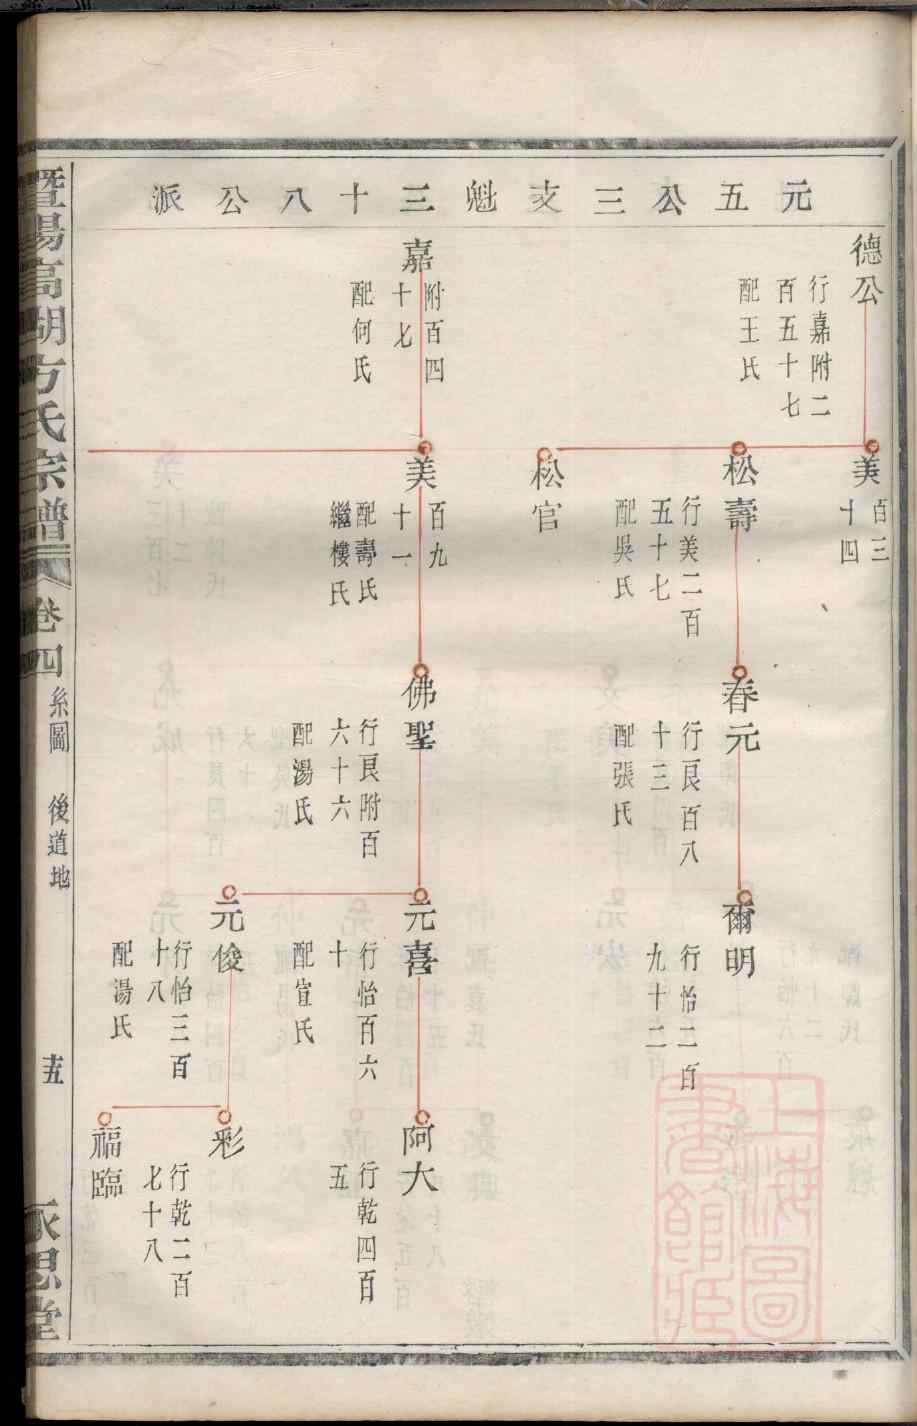 元五公三支魁三十八公派
德公
行嘉附二
百五十七
配王氏
嘉
附百四
十七
配何氏
美
百三
十四
松壽
行美二百
五十七
配吳氏
松官
美
百九
十一
配壽氏
繼樓氏
春元
行艮百八
十三
配張氏
佛聖
行艮附百
六十六
配湯氏
爾明
行怡二百
九十二
元喜
行怡百六
十
配宣氏
元俊
行怡三百
十八
配湯氏
阿大
行乾四百
五
彩
行乾二百
七十八
福臨
暨陽高湖方氏宗譜
卷四
系圖
後道地
十五
永思堂
上海圖
書館藏